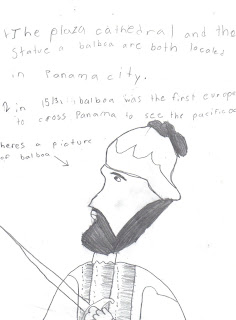 The plaza cathedral and the
Statue a balboa are both locate
in Panama city.
in balboa was the first europe
to cross Panama to see the pacific
heres a picture
of balboa